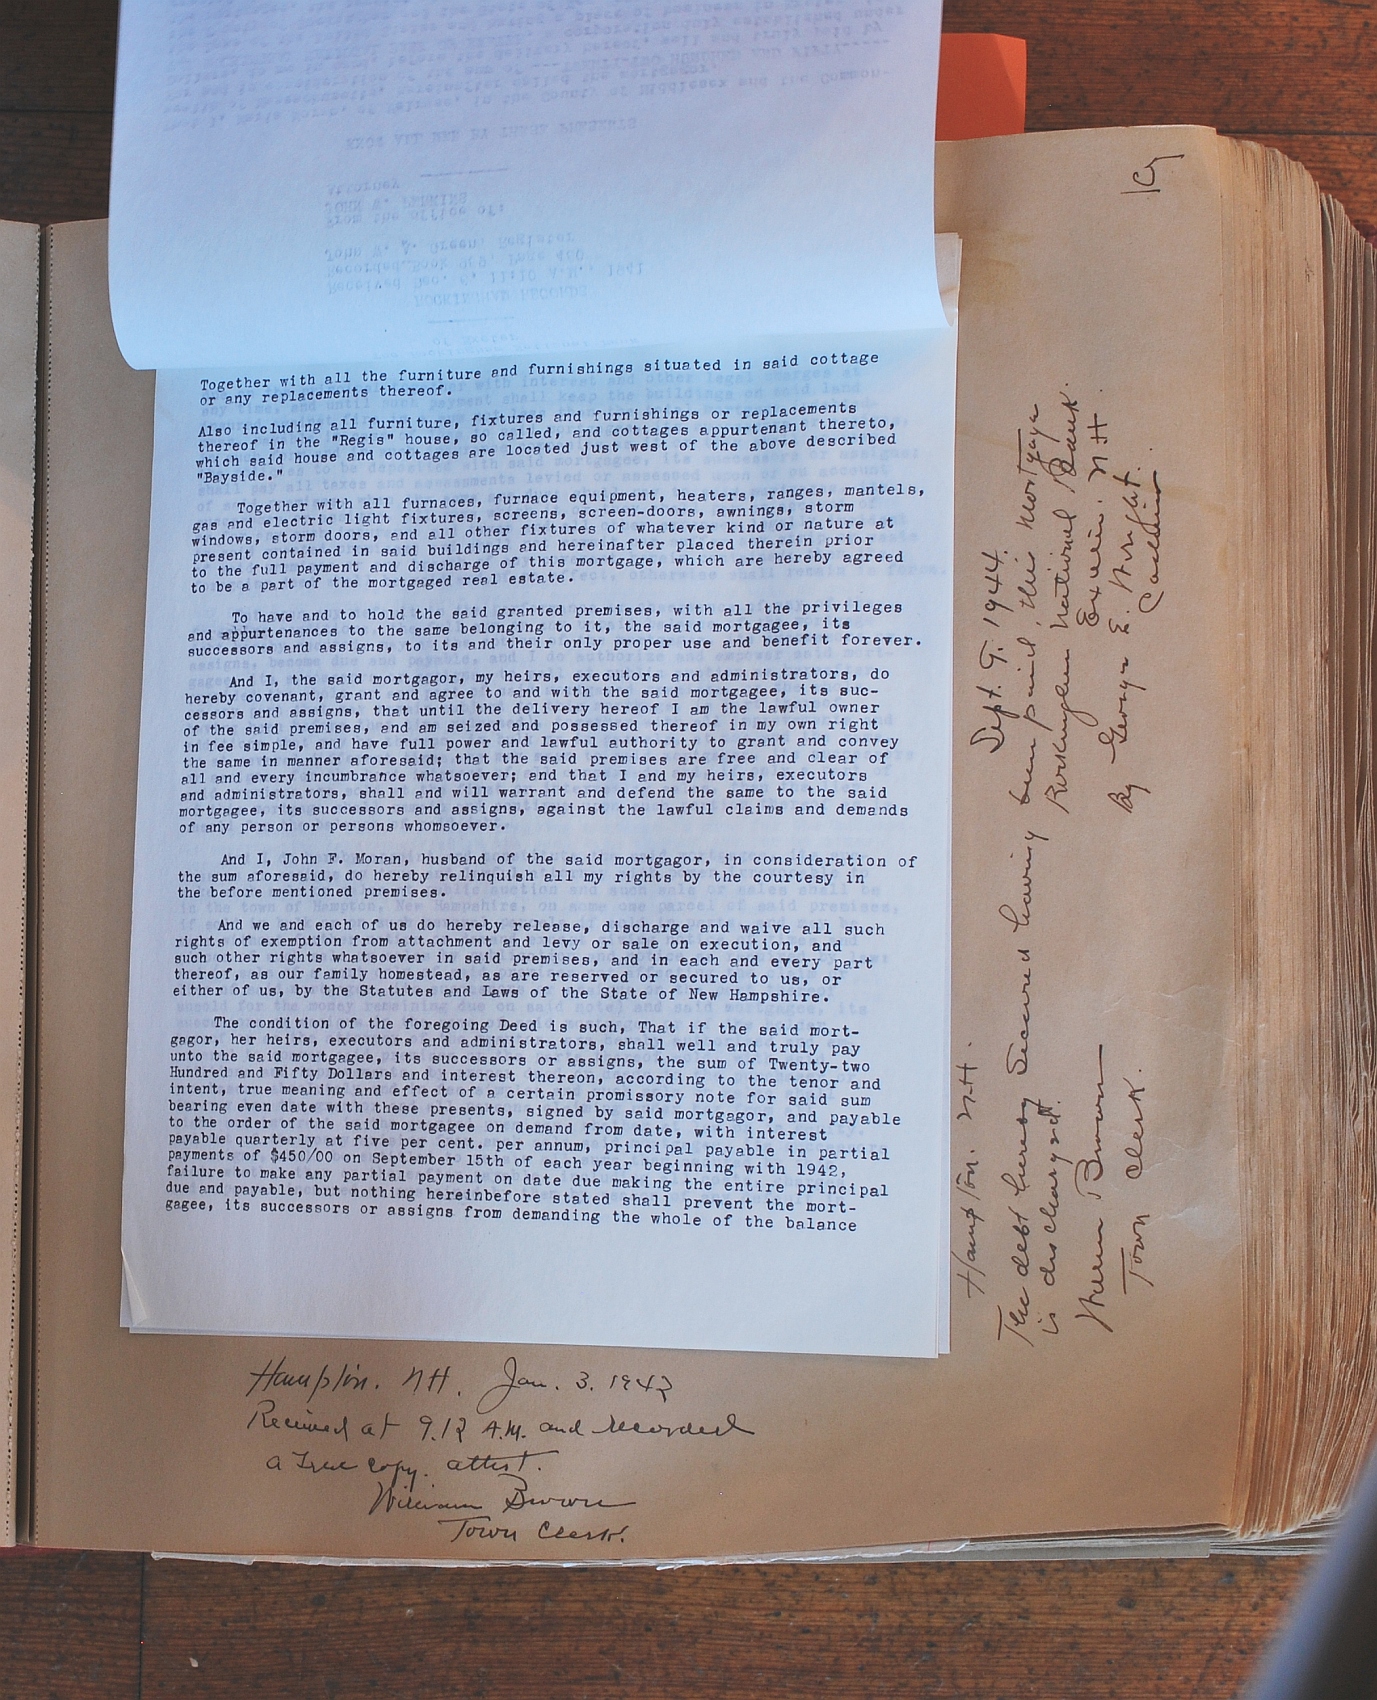 Together with all the furniture and furnishings situated in said cottage
or any replacements thereof.
Also including all furniture, fixtures and furnishings or replacements
thereof in the "Regis" house, so called, and cottages appurtenant thereto,
which said house and cottages are located just west of the above described
"Bayside."
Together with all furnaces, furnace equipment, heaters, ranges, mantels,
gas and electric light fixtures, screens, screen-doors, awnings, storm
windows, storm doors, and all other fixtures of whatever kind or nature at
present contained in said buildings and hereinafter placed therein prior
to the full payment and discharge of this mortgage, which are hereby agreed
to be a part of the mortgaged real estate.
To have and to hold the said granted premises, with all the privileges
and appurtenances to the same belonging to it, the said mortgagee, its
successors and assigns, to its and their only proper use and benefit forever.
And I, the said mortgagor, my heirs, executors and administrators, do
hereby covenant, grant and agree to and with the said mortgagee, its suc-
cessors and assigns, that until the delivery hereof I am the lawful owner
of the said premises, and am seized and possessed thereof in my own right
in fee simple, and have full power and lawful authority to grant and convey
the same in manner aforesaid; that the said premises are free and clear of
all and every incumbrance whatsoever; and that I and my heirs, executors
and administrators, shall and will warrant and defend the same to the said
mortgagee, its successors and assigns, against the lawful claims and demands
of any person or persons whomsoever.
And I, John F. Moran, husband of the said mortgagor, in consideration of
the sum aforesaid, do hereby relinquish all my rights by the courtesy in
the before mentioned premises.
And we and each of us do hereby release, discharge and waive all such
rights of exemption from attachment and levy or sale on execution, and
such other rights whatsoever in said premises, and in each and every part
thereof, as our family homestead, as are reserved or secured to us, or
either of us, by the Statutes and Laws of the State of New Hampshire.
The condition of the foregoing Deed is such, That if the said mort-
gagor, her heirs, executors and administrators, shall well and truly pay
unto the said mortgagee, its successors or assigns, the sum of Twenty-two
Hundred and Fifty Dollars and interest thereon, according to the tenor and
intent, true meaning and effect of a certain promissory note for said sum
bearing even date with these presents, signed by said mortgagor, and payable
to the order of the said mortgagee on demand from date, with interest
payable quarterly at five per cent. per annum, principal payable in partial
payments of $450/00 on September 15th of each year beginning with 1942,
failure to make any partial payment on date due making the entire principal
due and payable, but nothing hereinbefore stated shall prevent the mort-
gagee, its successors or assigns from demanding the whole of the balance
Hampton. NH. Jan. 3. 1942
Received at 9.12 A.M. and recorded
a True copy. attest.
William Brown
Town Clerk.
Hampton. N.H. Sept. 9. 1944.
The debt hereby Secured having been paid, this Mortgage
is discharged. Rockingham National Bank.
Exeter. N.H.
William Brown By George E. Wright.
Town Clerk. Cashier